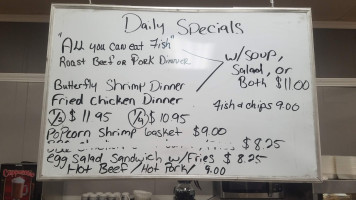 Daily Specials
"All you can eat Fish"
Roast Beef or Pork Dinner
w/ Soup,
Salad, or
Both $11.00
Butterfly Shrimp Dinner
Fried Chicken Dinner
Fish & chips 9.00
(1/2) $11.95 (1/4) $10.95
Popcorn Shrimp basket $9.00
$8.25
egg Salad Sandwich w/Fries $8.25
Hot Beef/Hot Pork/ 9.00